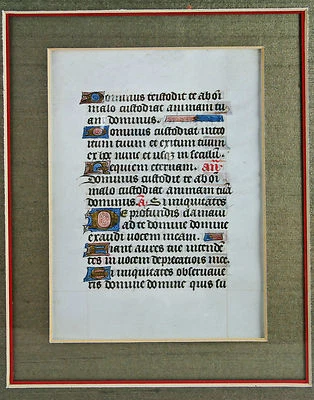 Dominus te custodit te ab om̄i
malo custodiat animam tu
am dominus.
Dominus custodiat intro
itum tuum et exitum tuum
ex hoc nunc et usq̨ in seculū.
Requiem eternam. an̄
Dominus custodit te ab om̄i
malo custodiat animam tuā
dominus. A. Si iniquitates
De profundis clamaui
ad te domine domine
exaudi uocem meam.
Fiant aures tue intende
tes in uocem deprecatiōis mee.
Si iniquitates obseruaue
ris domine domine quis su